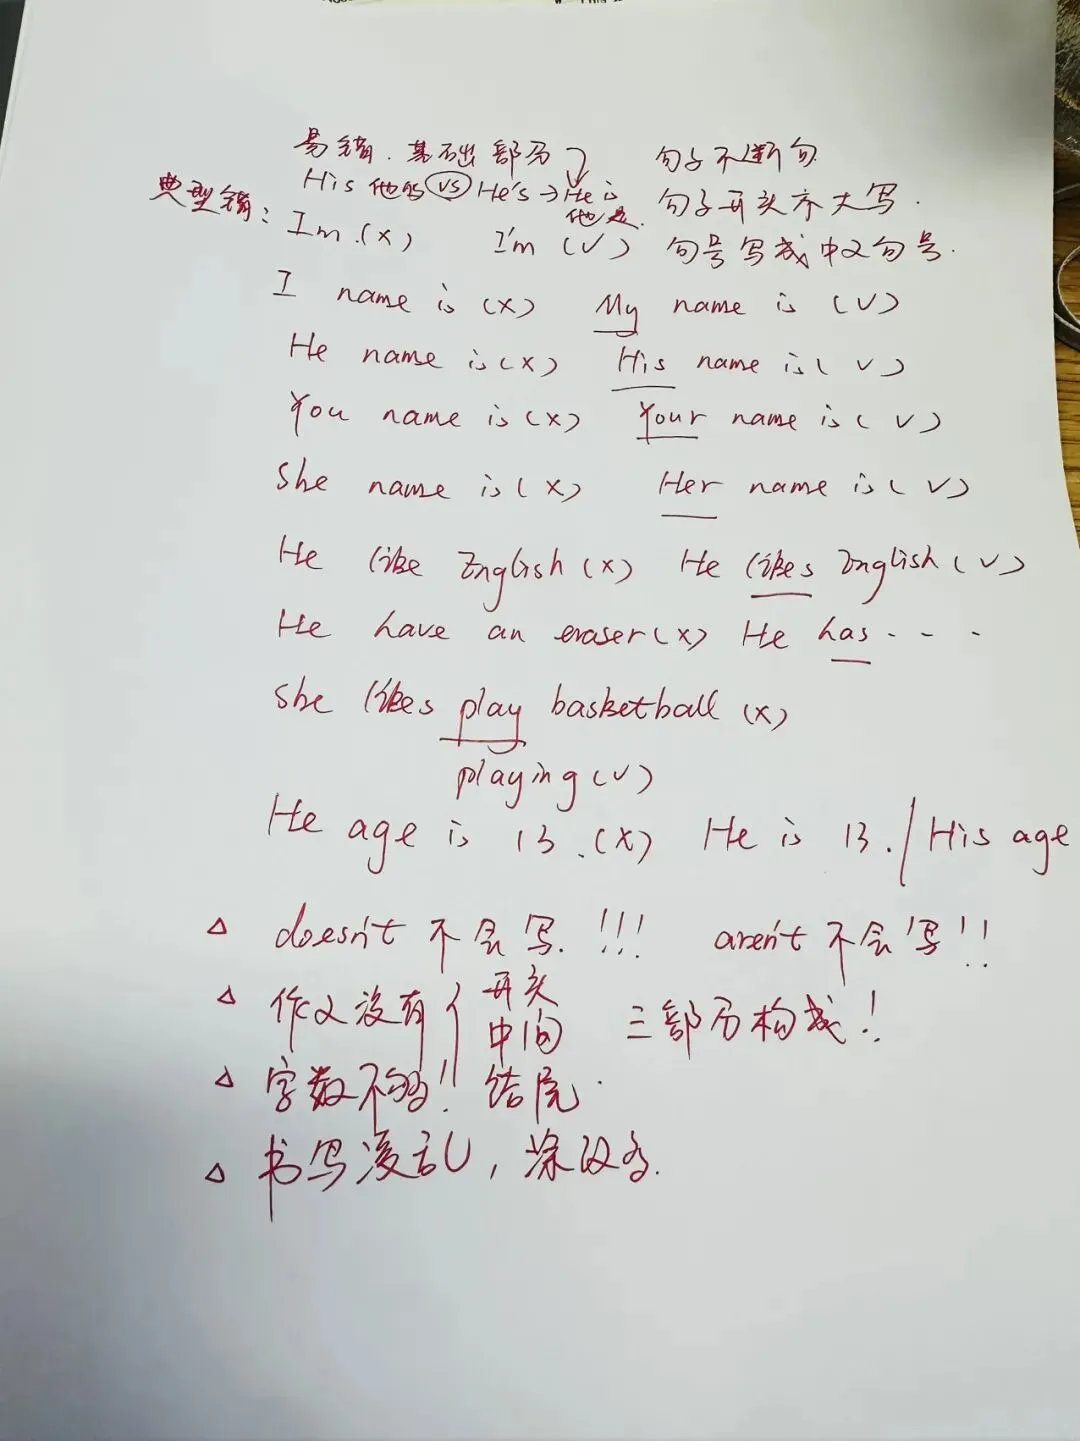 易错.基础部分 句子不断句
His 他的 vs He's→He is 他是. 句子开头不大写.
典型错: Im.(×) I'm (√) 句号写成中文句号.
I name is (×) My name is (√)
He name is (×) His name is (√)
You name is (×) Your name is (√)
She name is (×) Her name is (√)
He like English (×) He likes English (√)
He have an eraser (×) He has - - -
She likes play basketball (×)
playing (√)
He age is 13.(×) He is 13./His age
△ doesn't 不会写.!!! aren't 不会写!!
△ 作文没有{开头 中间 结尾. 三部分构成!
△ 字数不够!
△ 书写凌乱,涂改多.